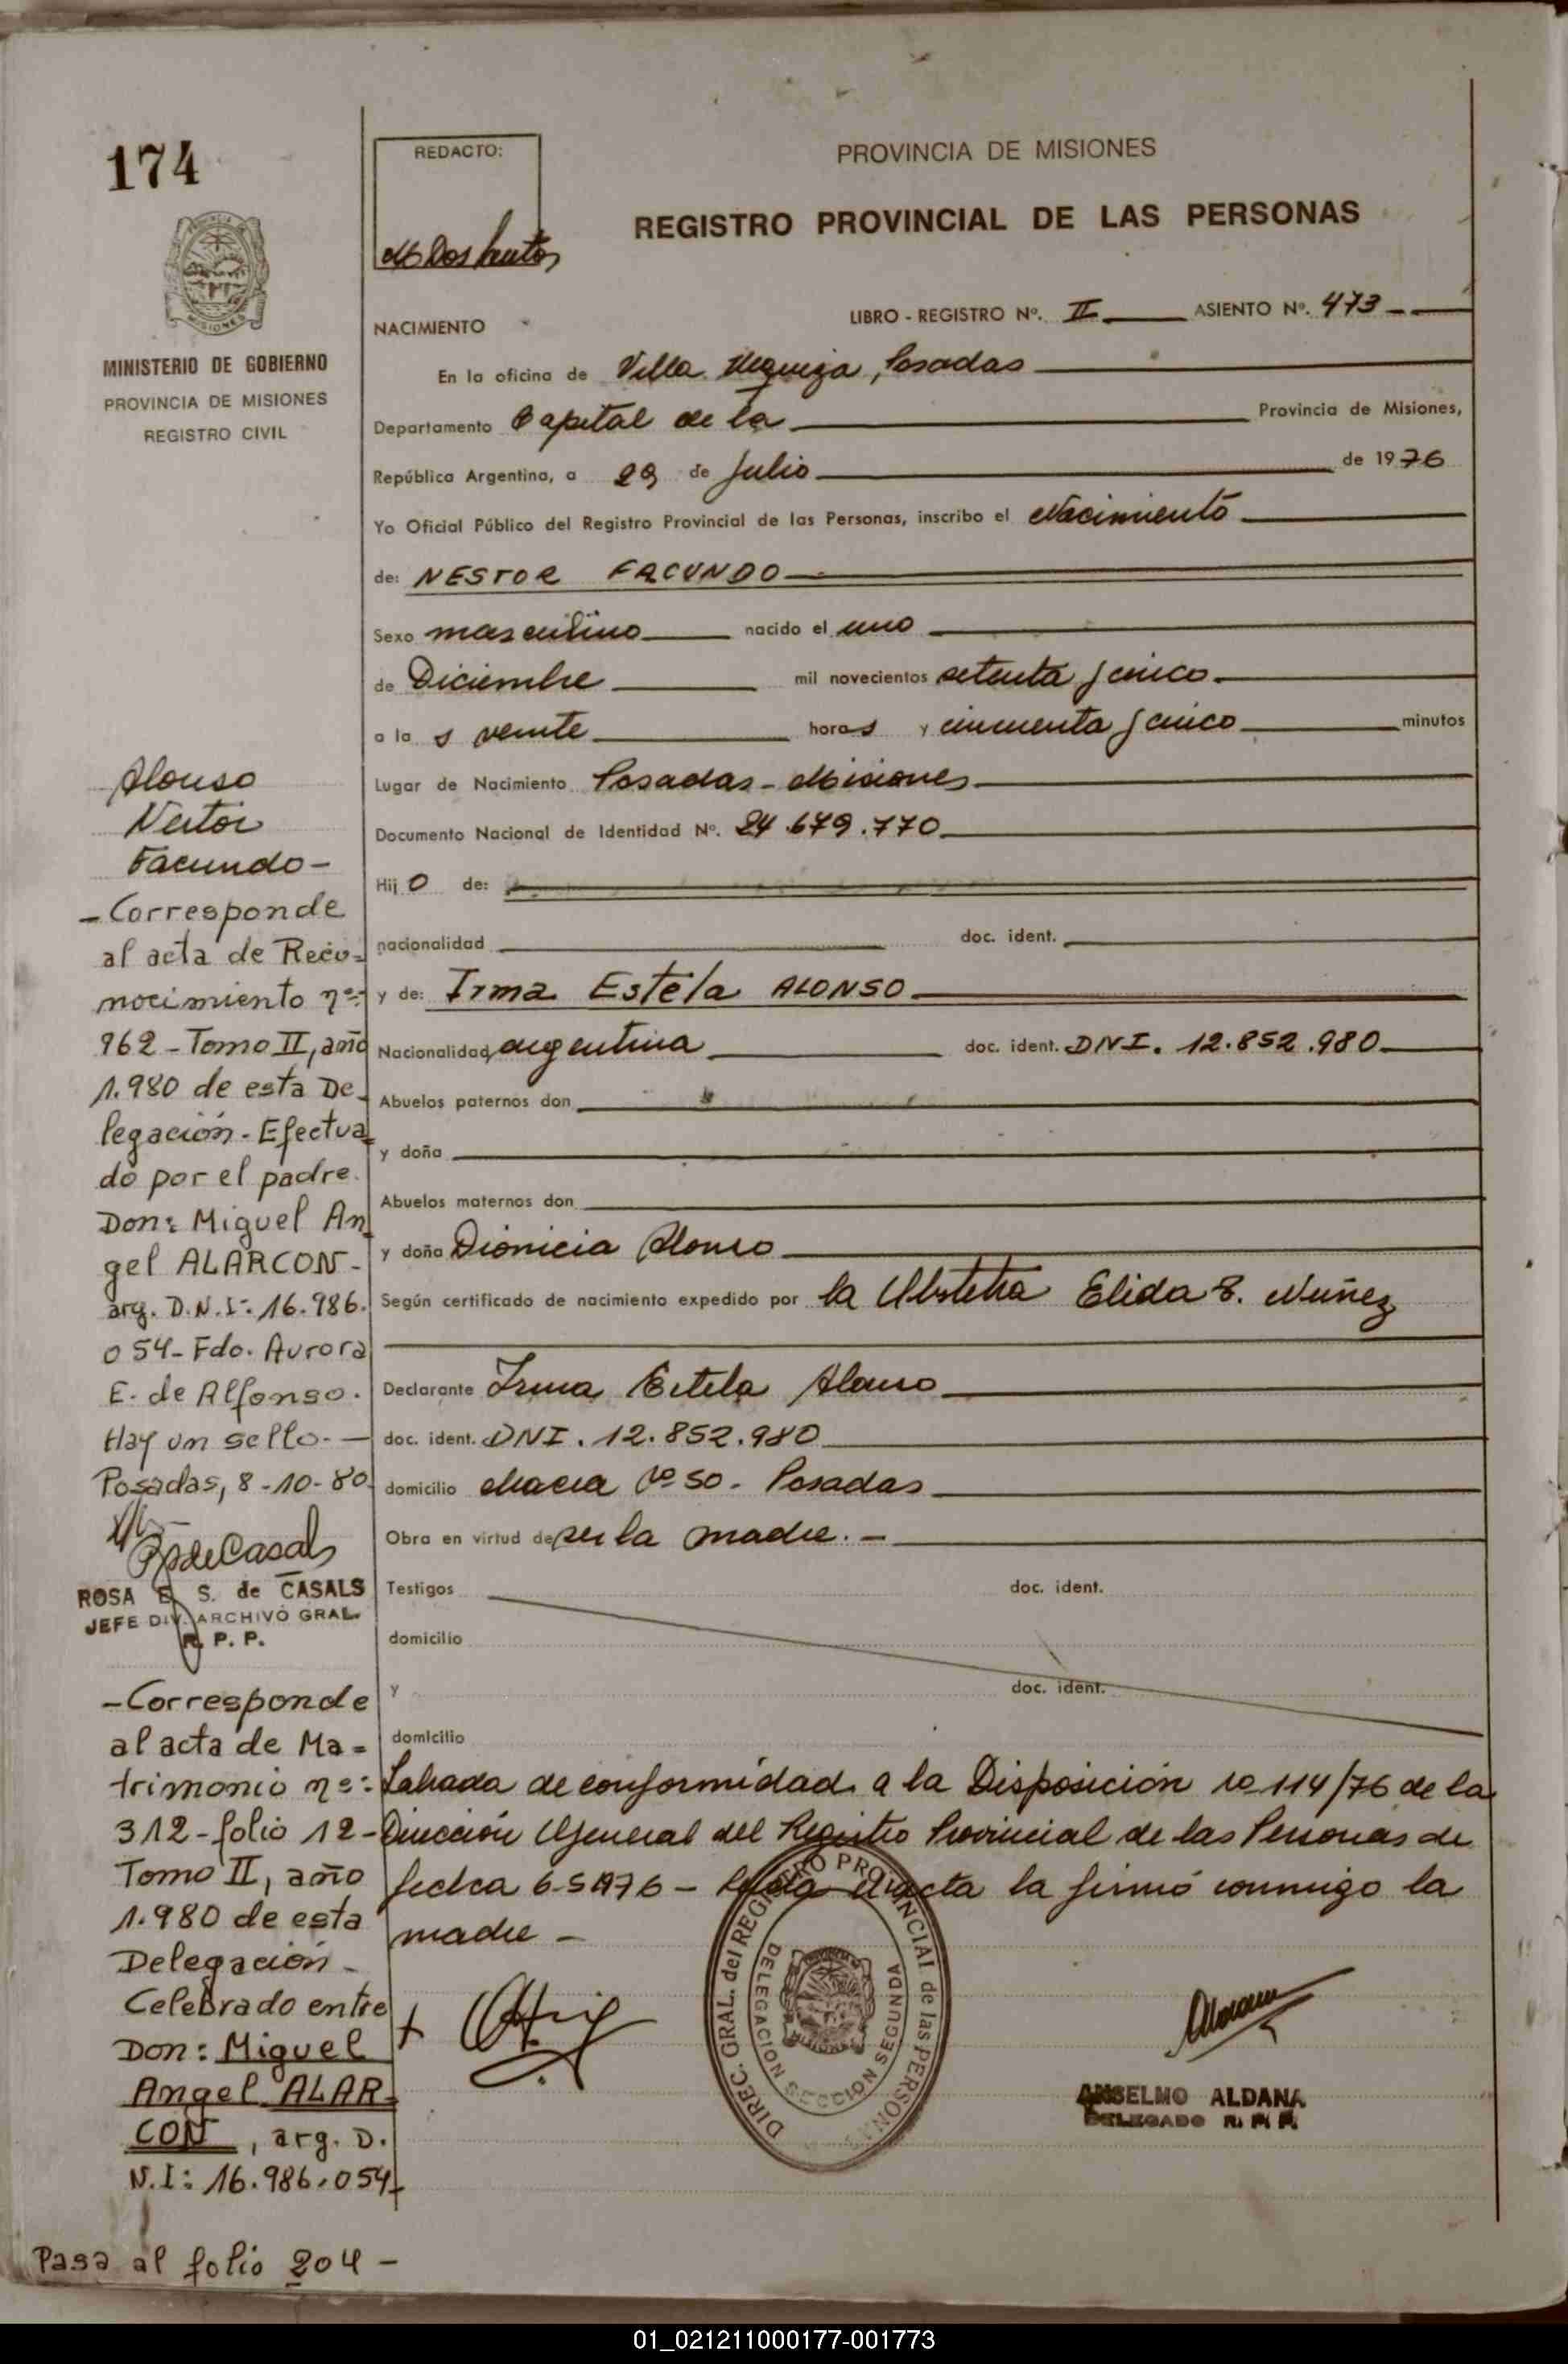 174
MINISTERIO DE GOBIERNO
PROVINCIA DE MISIONES
REGISTRO CIVIL
REDACTO:
PROVINCIA DE MISIONES
REGISTRO PROVINCIAL DE LAS PERSONAS
NACIMIENTO
LIBRO - REGISTRO Nº. II ASIENTO Nº. 473
En la oficina de Villa Urquiza, Posadas
Departamento Capital de la Provincia de Misiones,
República Argentina, a 29 de Julio de 1976
Yo Oficial Público del Registro Provincial de las Personas, inscribo el Nacimiento
de: NESTOR FACUNDO
Sexo masculino nacido el uno
de Diciembre mil novecientos setenta y cinco
a la s veinte horas y cincuenta y cinco minutos
Lugar de Nacimiento Posadas - Misiones
Documento Nacional de Identidad Nº. 24.679.770
Hijo de:
nacionalidad doc. ident.
y de: Irma Estela ALONSO
Nacionalidad argentina doc. ident. DNI. 12.852.980
Abuelos paternos don
y doña
Abuelos maternos don
y doña Dionicia Alonso
Según certificado de nacimiento expedido por la Obstetra Elida E. Nuñez
Declarante Irma Estela Alonso
doc. ident. DNI. 12.852.980
domicilio chacra Nº 50 - Posadas
Obra en virtud de ser la madre. -
Testigos doc. ident.
domicilio
y doc. ident.
domicilio
Labrada de conformidad a la Disposición Nº 114/76 de la
Dirección General del Registro Provincial de las Personas de
fecha 6-5-1976 - Leída el acta la firmó conmigo la
madre -
DIREC. GRAL. del REGISTRO PROVINCIAL de las PERSONAS
DELEGACION SECCION SEGUNDA
ANSELMO ALDANA
DELEGADO R. P. P.
Alonso
Nestor
Facundo -
- Corresponde
al acta de Reco-
nocimiento nº:
962 - Tomo II, año
1.980 de esta De-
legación - Efectua
do por el padre.
Don: Miguel An
gel ALARCON -
arg. D.N.I: 16.986.
054 - Fdo. Aurora
E. de Alfonso.
Hay un sello. -
Posadas, 8-10-80
ROSA E. S. de CASALS
JEFE DIV. ARCHIVO GRAL.
R. P. P.
- Corresponde
al acta de Ma =
trimonio nº:
312 - folio 12 -
Tomo II, año
1.980 de esta
Delegación -
Celebrado entre
Don: Miguel
Angel ALAR-
CON, arg. D.
N.I: 16.986.054
Pasa al folio 204 -
01_021211000177-001773